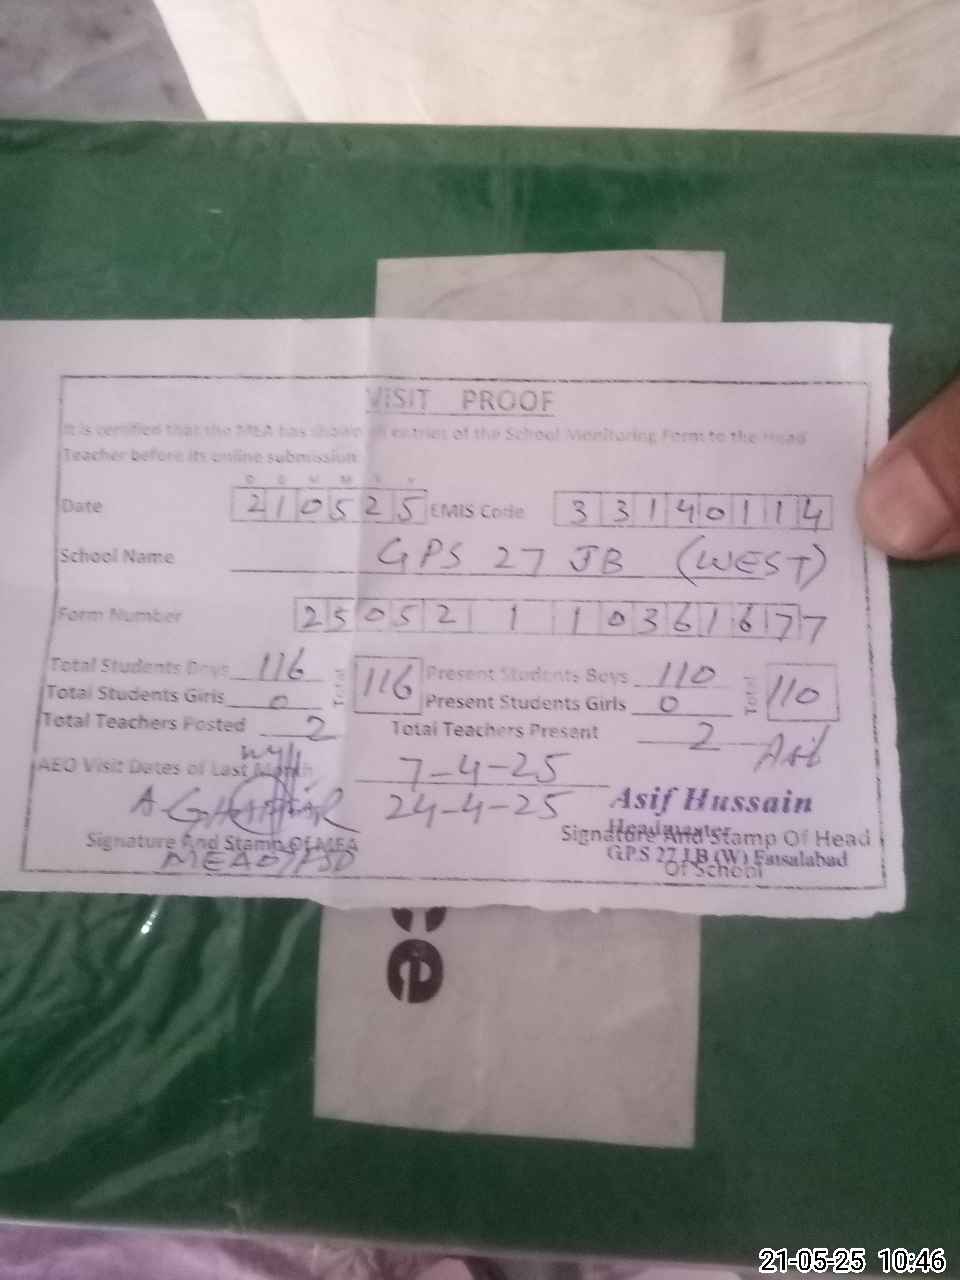 VISIT PROOF
It is certified that the MEA has shown all entries of the School Monitoring Form to the Head
Teacher before its online submission
D D M M Y Y
Date 210525 EMIS Code 33140114
School Name GPS 27 JB (WEST)
Form Number 25052 1 10361677
Total Students Boys 116 Total 116 Present Students Boys 110 Total 110
Total Students Girls 0 Present Students Girls 0
Total Teachers Posted 2 Total Teachers Present 2
AEO Visit Dates of Last Month 7-4-25
24-4-25
A. GHAFFAR
Asif Hussain
Headmaster
Signature And Stamp Of MEA Signature And Stamp Of Head
GPS 27 J.B (W) Faisalabad
Of School
ce
21-05-25 10:46